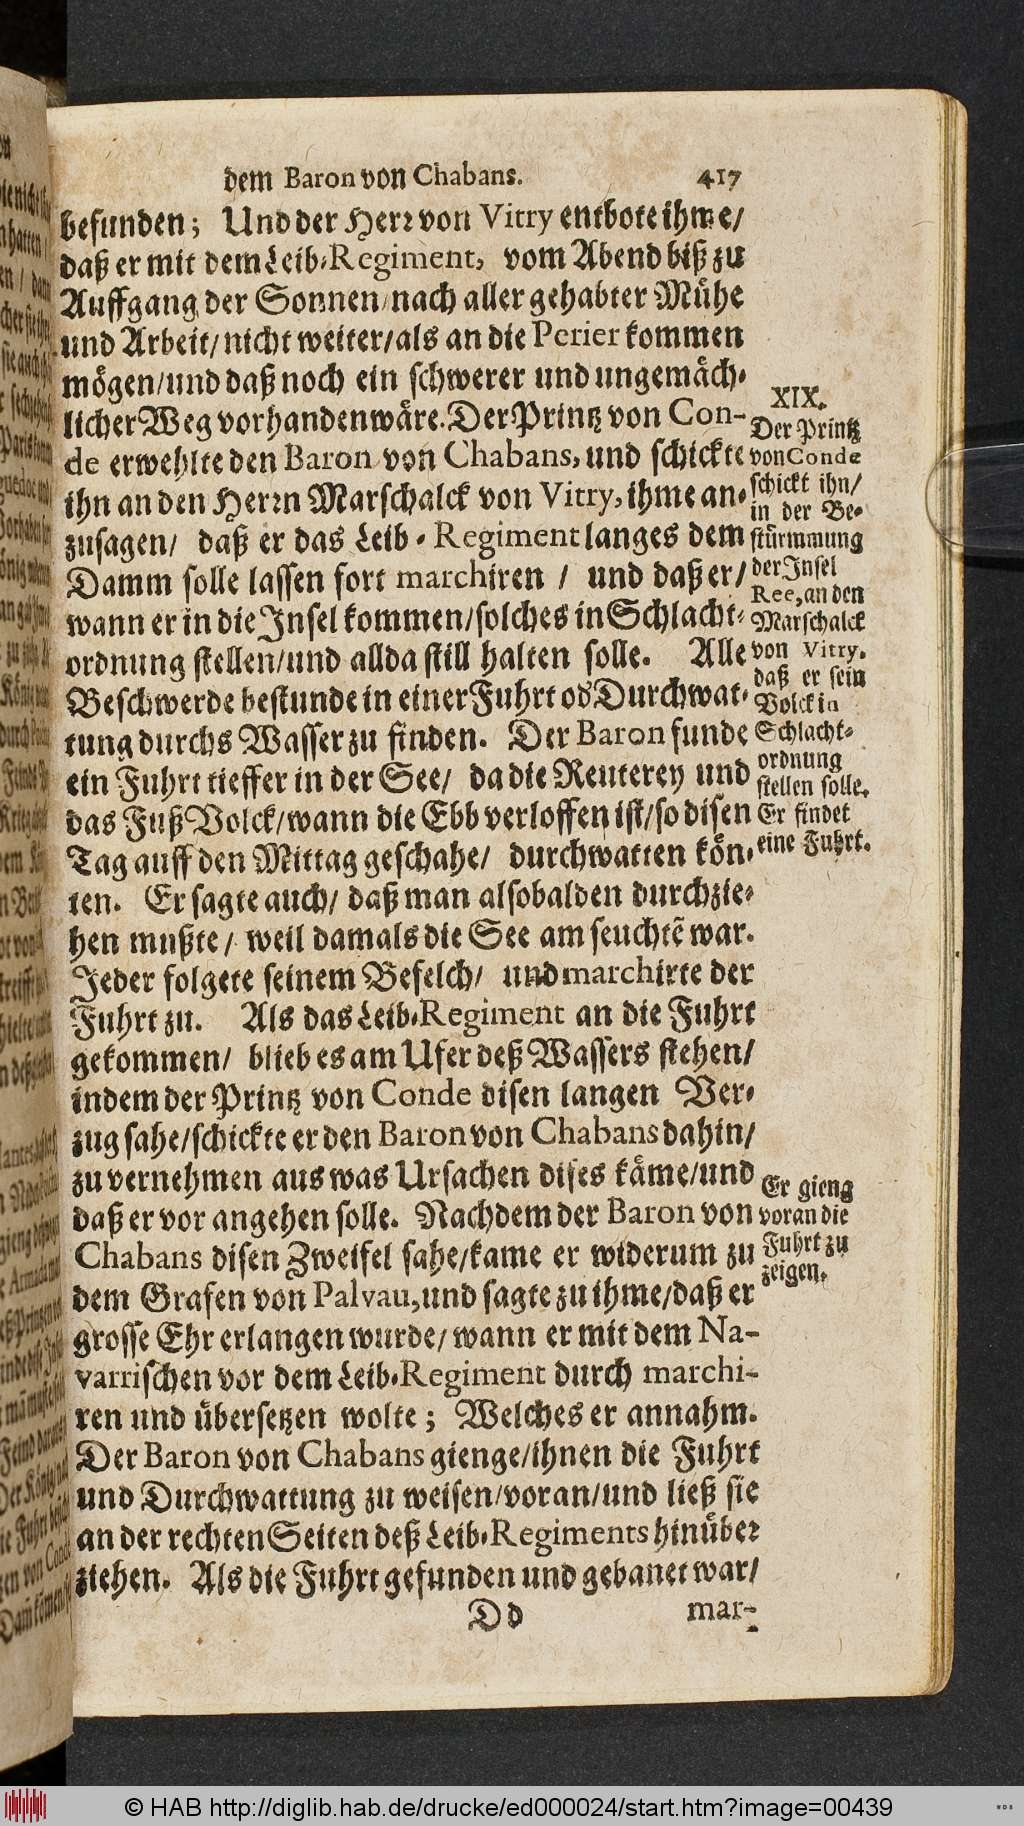 dem Baron von Chabans. 417
befunden; Und der Herr von Vitry entbote ihme/
daß er mit dem Leib-Regiment, vom Abend biß zu
Auffgang der Sonnen/nach aller gehabter Mühe
und Arbeit/nicht weiter/als an die Perier kommen
mögen/und daß noch ein schwerer und ungemäch-
licher Weg vorhanden wäre. Der Printz von Con-
de erwehlte den Baron von Chabans, und schickte
ihn an den Herrn Marschalck von Vitry, ihme an-
zusagen/ daß er das Leib-Regiment langes dem
Damm solle lassen fort marchiren / und daß er/
wann er in die Insel kommen/solches in Schlacht-
ordnung stellen/und allda still halten solle. Alle
Beschwerde bestunde in einer Fuhrt od Durchwat-
tung durchs Wasser zu finden. Der Baron funde
ein Fuhrt tieffer in der See/ da die Reuterey und
das Fuß Volck/wann die Ebb verloffen ist/so disen
Tag auff den Mittag geschahe/ durchwatten kön-
ten. Er sagte auch/ daß man alsobalden durchzie-
hen mußte/ weil damals die See am seuchtẽ war.
Jeder folgete seinem Befelch/ und marchirte der
Fuhrt zu. Als das Leib-Regiment an die Fuhrt
gekommen/ blieb es am Ufer deß Wassers stehen/
indem der Printz von Conde disen langen Ver-
zug sahe/schickte er den Baron von Chabans dahin/
zu vernehmen aus was Ursachen dises käme/und
daß er vor angehen solle. Nachdem der Baron von
Chabans disen Zweifel sahe/kame er widerum zu
dem Grafen von Palvau, und sagte zu ihme/daß er
grosse Ehr erlangen wurde/ wann er mit dem Na-
varrischen vor dem Leib-Regiment durch marchi-
ren und übersetzen wolte; Welches er annahm.
Der Baron von Chabans gienge/ihnen die Fuhrt
und Durchwattung zu weisen/voran/und ließ sie
an der rechten Seiten deß Leib-Regiments hinüber
ziehen. Als die Fuhrt gefunden und gebanet war/
Dd mar-
XIX.
Der Printz
von Conde
schickt ihn/
in der Be-
stürmmung
der Insel
Ree, an den
Marschalck
von Vitry.
daß er sein
Volck in
Schlacht-
ordnung
stellen solle.
Er findet
eine Fuhrt.
Er gieng
voran die
Fuhrt zu
zeigen.
© HAB http://diglib.hab.de/drucke/ed000024/start.htm?image=00439